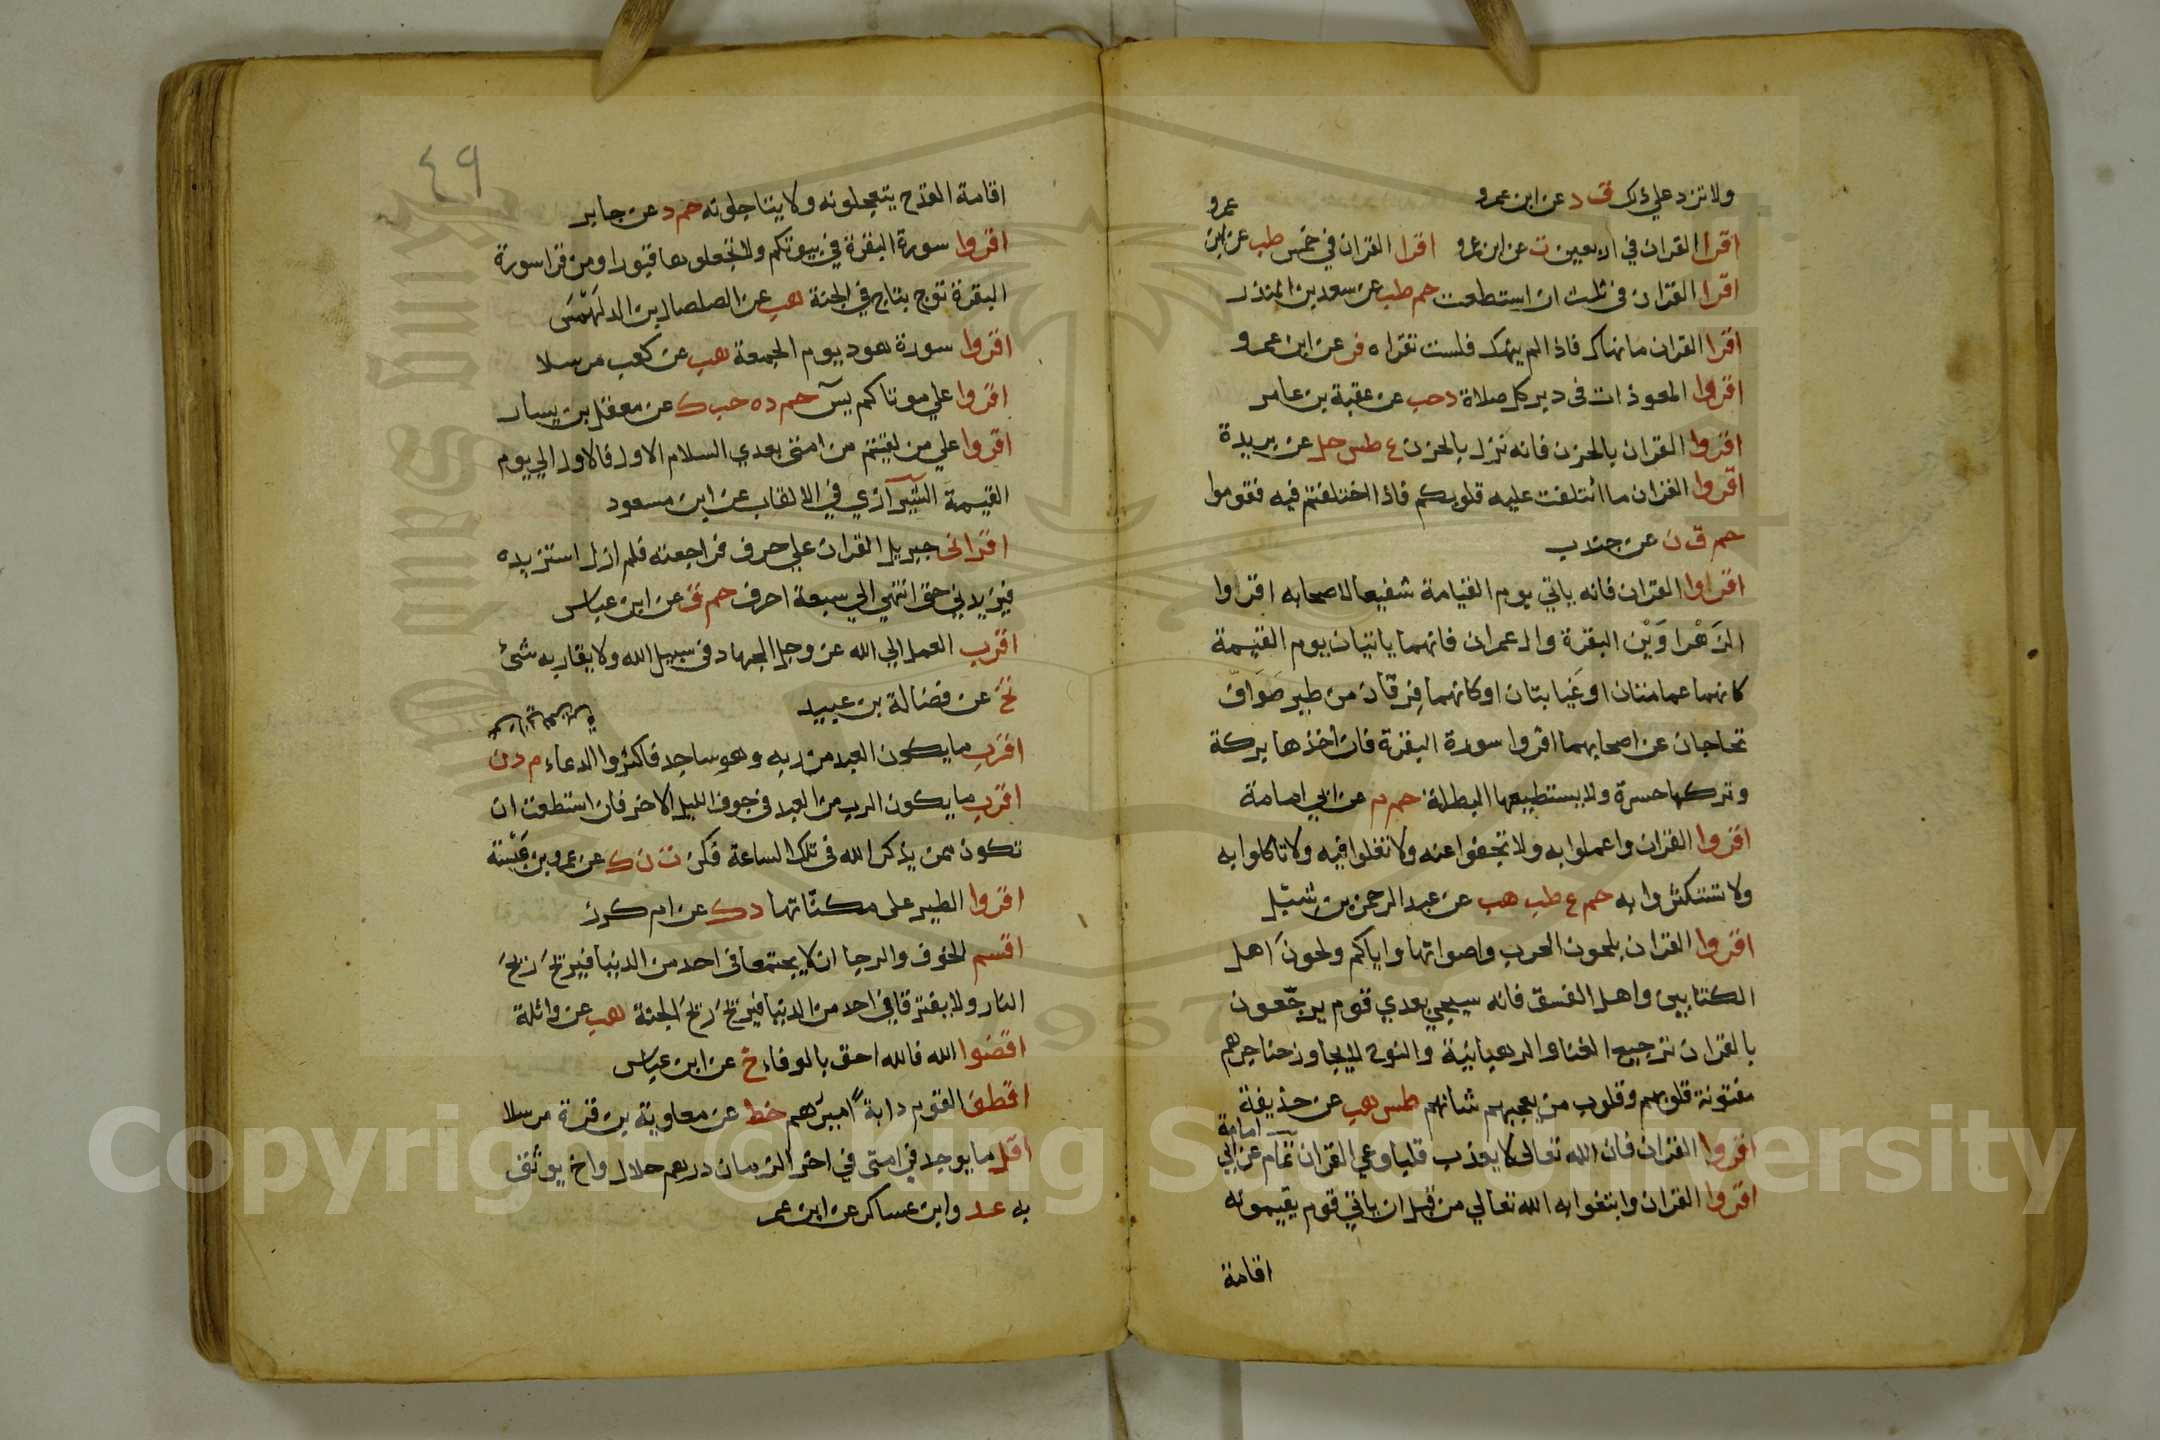 ولا تزد علي ذلك ق د عن ابن عمرو
اقرا القران في اربعين ت عن ابن عمرو اقرا القران في خمس طب عن ابن عمرو
اقرا القران في ثلث ان استطعت حم طب عن سعد بن المنذر
اقرا القران ما نهاك فاذا لم ينهك فلست تقراه فر عن ابن عمرو
اقروا المعوذات في دبر كل صلاة د حب عن عقبة بن عامر
اقروا القران بالحزن فانه نزل بالحزن ع طس حل عن بريدة
اقروا القران ما ائتلفت عليه قلوبكم فاذا اختلفتم فيه فقوموا
حم ق ن عن جندب
اقراوا القران فانه ياتي يوم القيامة شفيعا لاصحابه اقراوا
الزَهْراوَيْن البقرة وال عمران فانهما ياتيان يوم القيمة
كانهما عمامتان او غَيابتان او كانهما فِرقان من طير صَوافّ
تحاجان عن اصحابهما اقروا سورة البقرة فان اخذها بركة
وتركها حسرة ولا يستطيعها البطلة حم م عن ابي امامة
اقروا القران واعملوا به ولا تجفوا عنه ولا تغلوا فيه ولا تاكلوا به
ولا تستكثروا به حم ع طب هب عن عبد الرحمن بن شبل
اقروا القران بلحون العرب واصواتها واياكم ولحون اهل
الكتابين واهل الفسق فانه سيجي بعدي قوم يرجّعون
بالقران ترجيع الغنا والرهبانية والنوح لا يجاوز حناجرهم
مفتونة قلوبهم وقلوب من يعجبهم شانهم طس هب عن حذيفة
اقروا القران فان الله تعالى لا يعذب قلبا وعي القران تمام عن ابي امامة
اقروا القران وابتغوا به الله تعالي من قبل ان ياتي قوم يقيمونه
اقامة
٤٩
اقامة القدح يتعجلونه ولا يتاجلونه حم د عن جابر
اقروا سورة البقرة في بيوتكم ولا تجعلوها قبورا ومن قرا سورة
البقرة توج بتاج في الجنة هب عن الصلصال بن الدلَهْمَس
اقروا سورة هود يوم الجمعة هب عن كعب مرسلا
اقروا علي موتاكم يس حم د ه حب ك عن معقل بن يسار
اقروا علي من لقيتم من امتي بعدي السلام الاول فالاول الي يوم
القيمة الشيرازي في الالقاب عن ابن مسعود
اقراني جبريل القران علي حرف فراجعته فلم ازل استزيده
فيزيدني حتى انتهي الي سبعة احرف حم ق عن ابن عباس
اقرب العمل الي الله عز وجل الجهاد في سبيل الله ولا يقاربه شئ
تخ عن فضالة بن عبيد
اقرب ما يكون العبد من ربه وهو ساجد فاكثروا الدعاء م د ن
اقرب ما يكون الرب من العبد في جوف الليل الاخر فان استطعت ان
تكون ممن يذكر الله في تلك الساعة فكن ت ن ك عن عمرو بن عَبْسة
اقروا الطير على مكناتها د ك عن ام كرز
اقسم الخوف والرجا ان لا يجتمعا في احد من الدنيا فيرتحَ رتحَ
النار ولا يفترقا في احد من الدنيا فيرتحَ رتحَ الجنة هب عن واثلة
اقضوا الله فالله احق بالوفاء خ عن ابن عباس
اقطف القوم دابة اميرهم خط عن معاوية بن قرة مرسلا
اقل ما يوجد في امتي في اخر الزمان درهم حلال واخ يوثق
به عد وابن عساكر عن ابن عمر